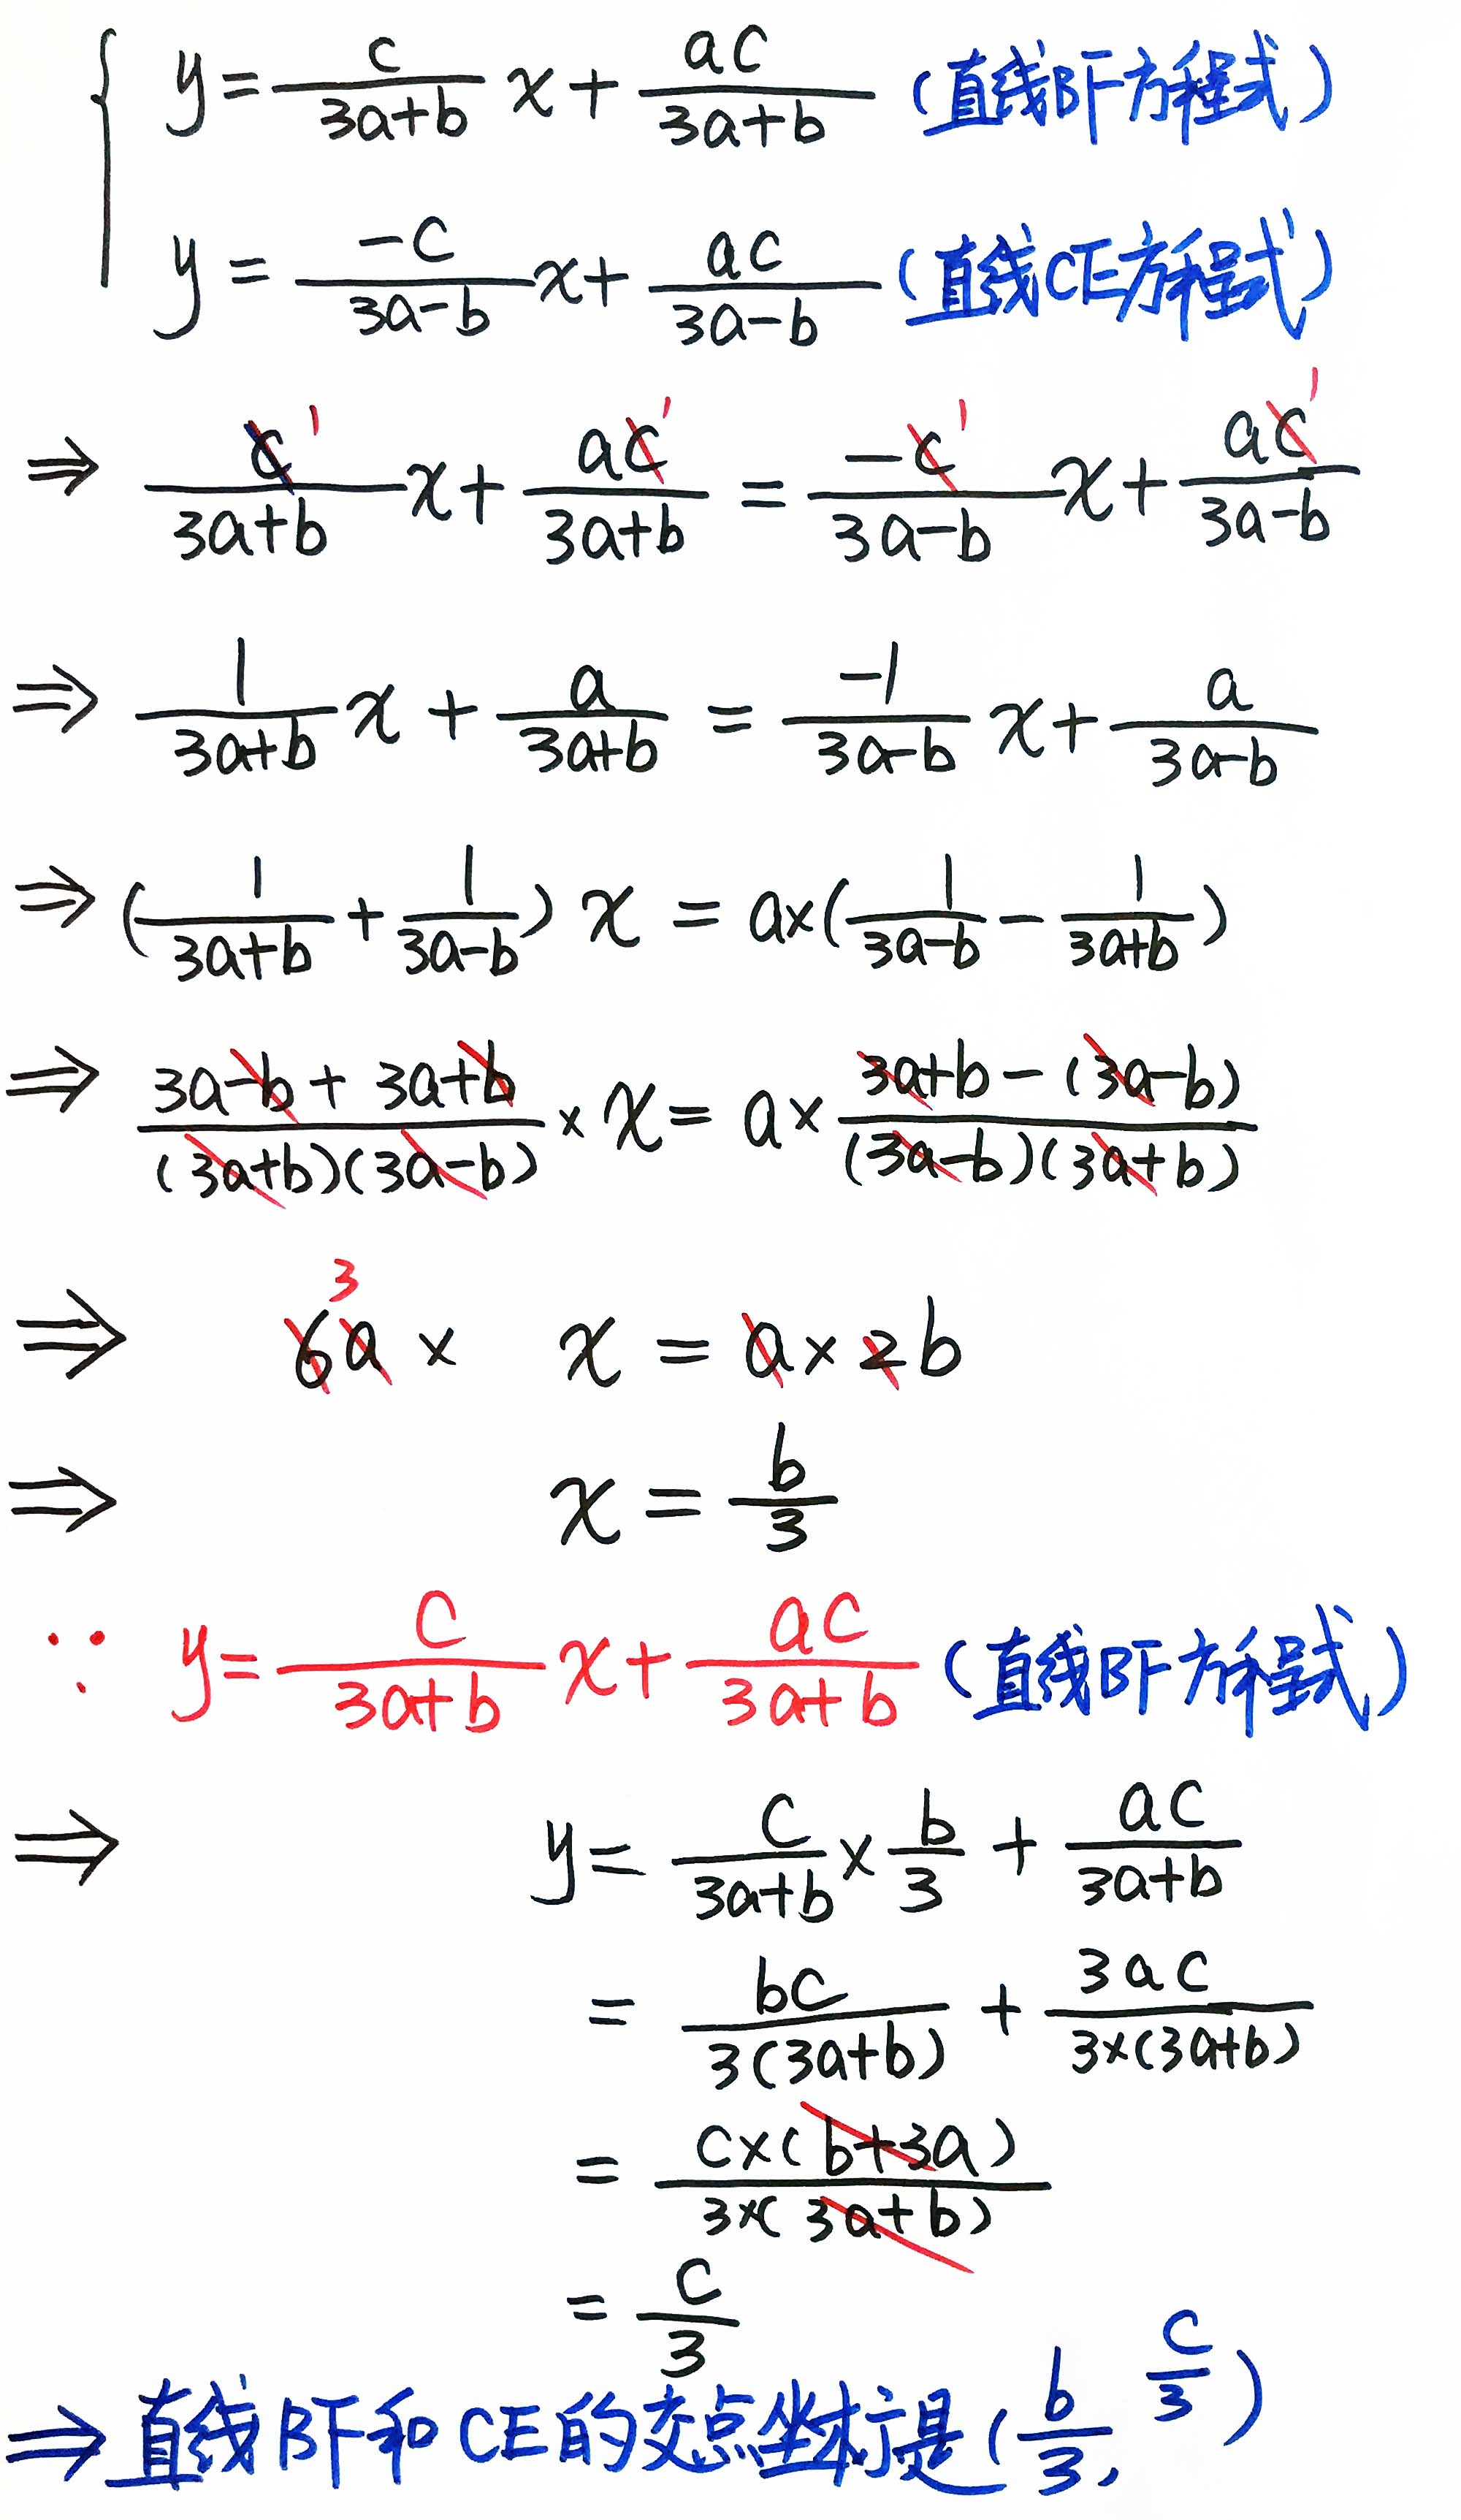 y = \frac{c}{3a+b} x + \frac{ac}{3a+b} (直线BF方程式)
y = \frac{-c}{3a-b} x + \frac{ac}{3a-b} (直线CE方程式)
⇒ \frac{c^1}{3a+b} x + \frac{ac^1}{3a+b} = \frac{-c^1}{3a-b} x + \frac{ac^1}{3a-b}
⇒ \frac{1}{3a+b} x + \frac{a}{3a+b} = \frac{-1}{3a-b} x + \frac{a}{3a-b}
⇒ (\frac{1}{3a+b} + \frac{1}{3a-b}) x = a×(\frac{1}{3a-b} - \frac{1}{3a+b})
⇒ \frac{3a-b+3a+b}{(3a+b)(3a-b)} × x = a × \frac{3a+b-(3a-b)}{(3a-b)(3a+b)}
3
⇒ 6a × x = a × 2b
⇒ x = \frac{b}{3}
∵ y = \frac{c}{3a+b} x + \frac{ac}{3a+b} (直线BF方程式)
⇒ y = \frac{c}{3a+b} × \frac{b}{3} + \frac{ac}{3a+b}
= \frac{bc}{3(3a+b)} + \frac{3ac}{3×(3a+b)}
= \frac{c×(b+3a)}{3×(3a+b)}
= \frac{c}{3}
⇒ 直线BF和CE的交点坐标是(\frac{b}{3}, \frac{c}{3})